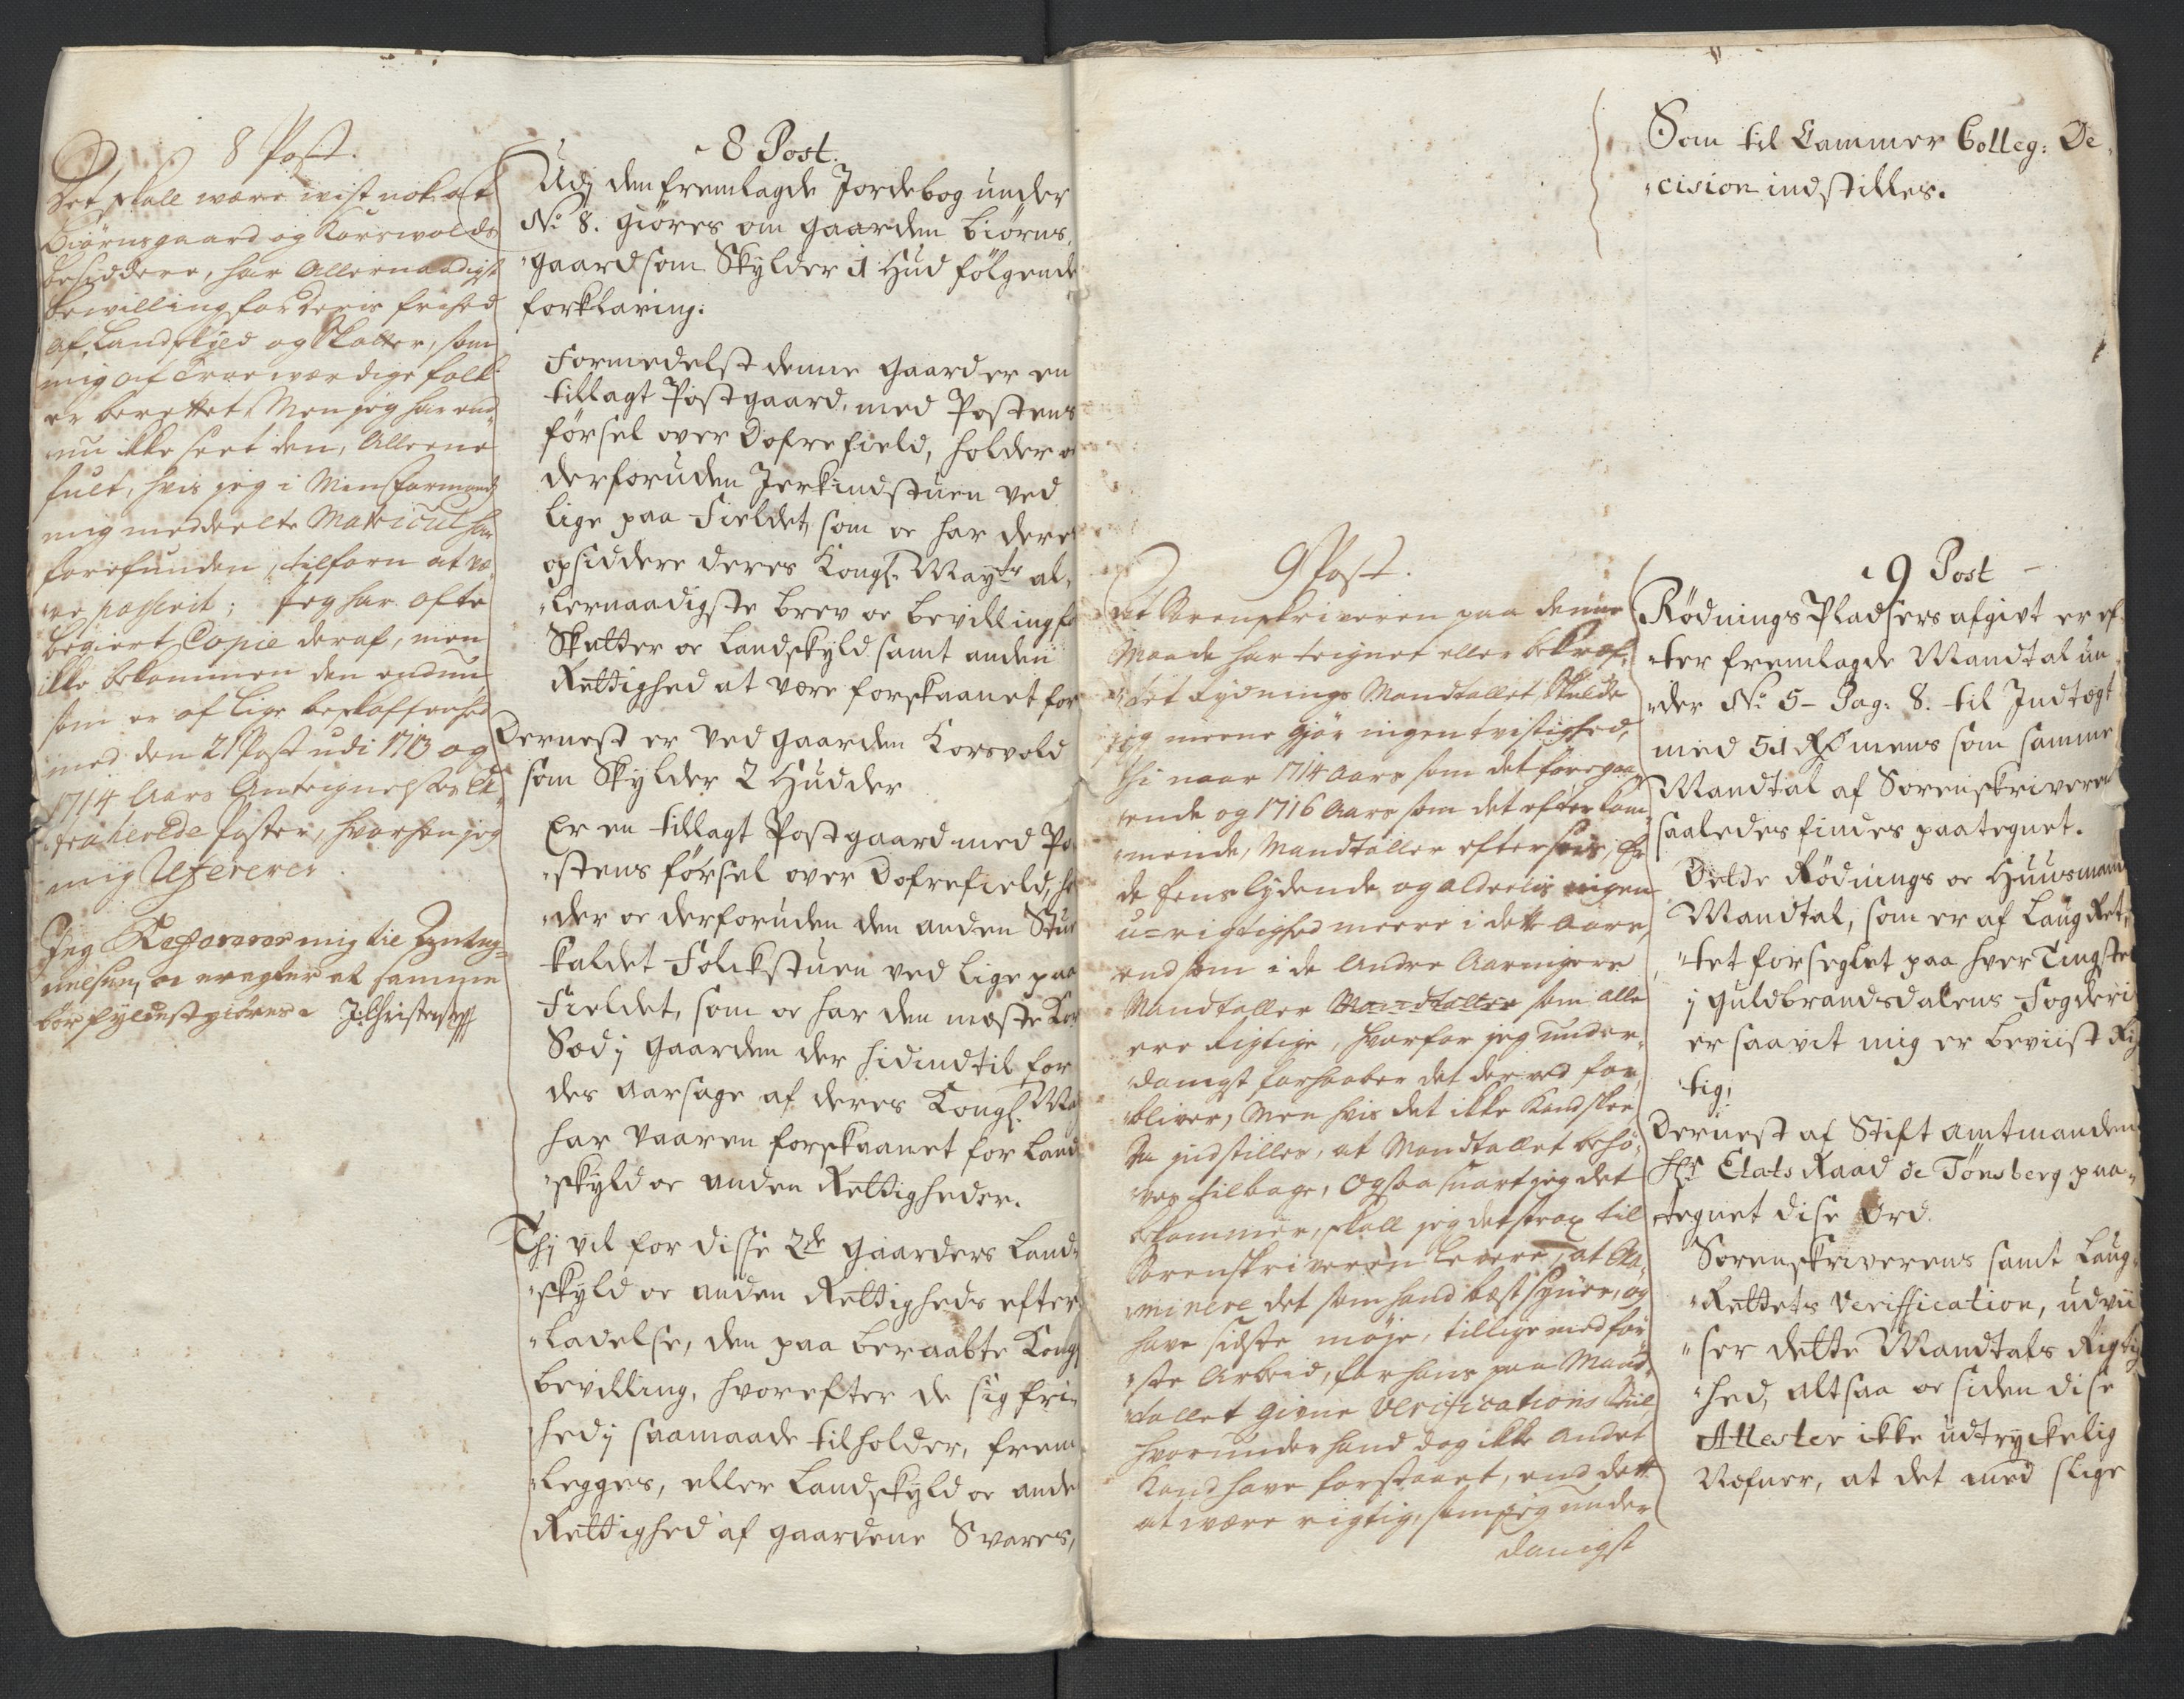 8 Post.
Det skall være vist nok at
Biørnsgaard og Korsvolds
besiddere, har Allernaadigst
bevilling for deris frihed
af Landskyld og Skatter, som
mig af Troeværdige folk
er berettet, Men jeg har end
nu ikke seet den, Alleene
fult, hvis jeg i Min formand
mig meddeelte Matricul har
forefunden, tilforn at væ¬
re passerit; Jeg har ofte
begiert Copie deraf, men
ikke bekommen den endnu
som er af lige beskaffenhed
med den 21 Post udi 1713 og
1714 Aars Antegnelsers Ex¬
traherede Poster, hvorhen jeg
mig Refererer.
Jeg Refererer mig til Anteg¬
nelsen, oc eragter at samme
bør fyldestgiøres. J: Christensen
8 Post.
Udj den fremlagde Jordebog under
No 8. giøres om gaarden Biørns¬
gaard som Skylder 1 Hud følgende
forklaring:
Formedelst denne gaard er en
tillagt Postgaard, med Postens
førsel over Dofrefield, holder oc
derforuden Jerkindstuen ved
lige paa Fieldet, som oc har deres
opsiddere deres Kongl. Maytz al¬
lernaadigste brev oc bevilling for
Skatter oc Landskyld samt anden
Rettighed at være forskaanet for
Dernest er ved gaarden Korsvold
som Skylder 2 Hudder
Er en tillagt Postgaard med Po
stens førsel over Dofrefield, hol
der oc derforuden den anden Stue
kaldet Folckstuen ved lige paa
Fieldet, som oc har den mæste Kor
Sæd j gaarden der hidindtil for
des aarsage af deres Kongl. May
har vaaren forskaanet for Land
skyld oc anden Rettigheder.
Thj vil for disse 2de gaarders Land¬
skyld oc anden Rettigheds efter¬
ladelse, den paa beraabte Kongl
bevilling, hvorefter de sig fri¬
hed j saamaade tilholder, frem¬
legges, eller Landskyld oc anden
Rettighed af gaardene Svares,
Som til Cammer Colleg: De¬
cision indstilles.
9 Post.
At Sorenskriveren paa denne
Maade har teignet eller bekræf¬
tet Rydnings Mandtallet, Skulde
jeg meene gjør ingen tvistighed,
thi naar 1714 Aars som det foregaa¬
ende og 1716 Aars som det efterkom¬
mende, Mandtaller eftersees, Er
de Eenslydende, og aldeelis ingen
u-rigtighed meere i dette Aars,
end som i de Andre Aaringers
Mandtaller som alle
ere Rigtige, hvorfor jeg under¬
danigst forhaaber det der ved for¬
bliver, Men hvis det ikke kand skee
Da indstilles, at Mandtallet behø¬
ves tilbage, Ogsaa snart jeg det
bekommer, skall jeg det strax til
Sorenskriveren levere, at Exa¬
minere det som hand best synes, og
have sidste møje, tillige med før¬
ste Arbeid, for hans paa Mand¬
tallet givne Verifications
hvorunder hand dog ikke andet
kand have forstaaet, end dette
at være rigtig, som jeg under
danigst
9 Post
Rødnings Pladsers afgivt er ef¬
ter fremlagde Mandtal un¬
der No 5 - Pag: 8. til Indtægt
med 51 Rd mens som samme
Mandtal af Sorenskriveren
saaledes findes paategnet.
Dette Rødnings oc Huusmands
Mandtal, som er af Laug Ret¬
tet forseglet paa hver Tingsted
j Guldbrandsdalens Fogderi
er saavit mig er beviist Rig
tig;
Dernest af Stift amtmanden
Hr Etats Raad de Tønsberg paa¬
tegnet dise Ord.
Sorenskriverens samt Laug¬
Rettets Veriffication, udvii
ser dette Mandtals Rigtig
hed, altsaa oc siden dise
Attester ikke udtryckelig
Nefner, at det med slige